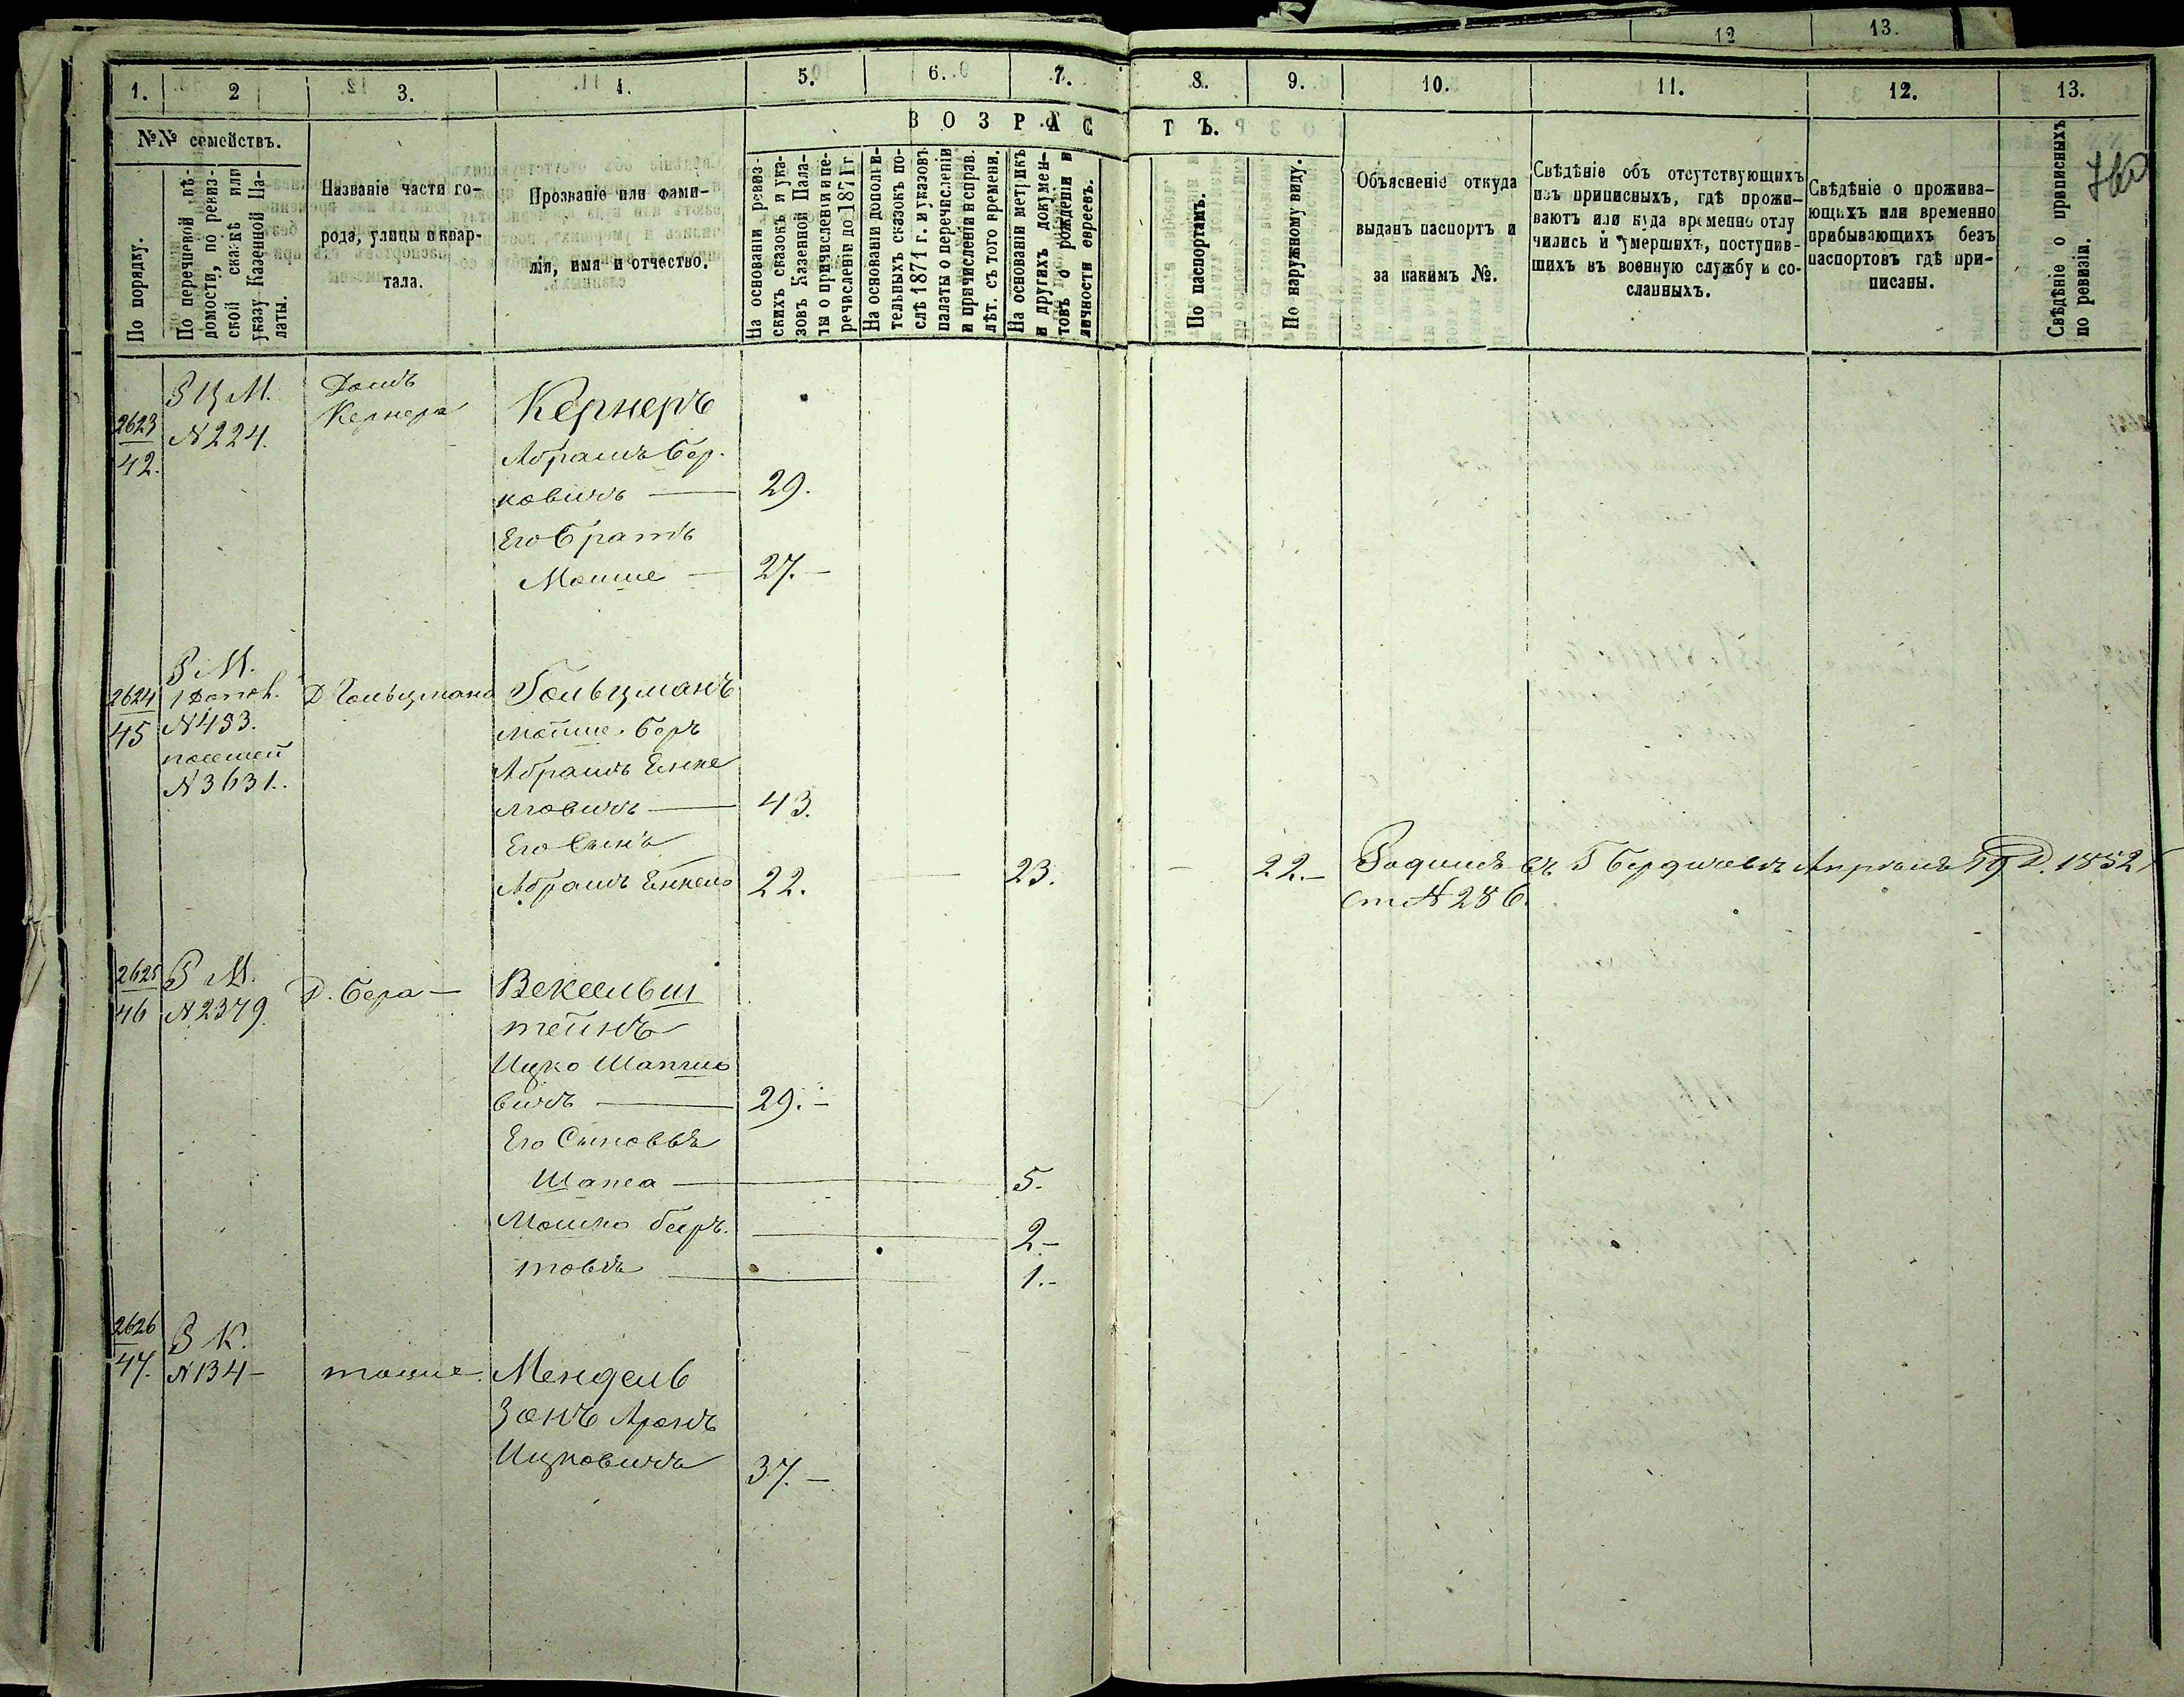 12 13.
1. 2 3. 4. 5. 6. 7. 8. 9. 10. 11. 12. 13.
В О З Р А С Т Ъ.
№№ семействъ.
По порядку.
По перечневой вѣ-
домости, по ревиз-
ской сказкѣ или
указу Казенной Па-
латы.
Названіе части го-
рода, улицы и квар-
тала.
Прозваніе или фами-
лія, имя и отчество.
На основаніи ревиз-
скихъ сказокъ и ука-
зовъ Казенной Пала-
ты о причисленіи и пе-
речисленіи до 1871 г.
На основаніи дополни-
тельныхъ сказокъ по-
слѣ 1871 г. и указовъ
палаты о перечисленіи
и причисленіи и справ.
лѣт. съ того времени.
На основаніи метрикъ
и другихъ докумен-
товъ о рожденіи и
личности евреевъ.
По паспортамъ.
По наружному виду.
Объясненіе откуда
выданъ паспортъ и
за какимъ №.
Свѣдѣніе объ отсутствующихъ
изъ приписныхъ, гдѣ прожи-
ваютъ или куда временно отлу
чились и умершихъ, поступив-
шихъ въ военную службу и со-
сланныхъ.
Свѣдѣніе о прожива-
ющихъ или временно
прибывающихъ безъ
паспортовъ гдѣ при-
писаны.
Свѣдѣніе о приписныхъ
по ревизіи.
2623
42.
N 224.
Домъ
Кернера
Кернеръ
Абрамъ Бер-
ковичъ — 29.
Его Братъ
Мошие — 27. —
2624
45
N 433.
N 3631.
Д Гольцмана
Гольцманъ
Мойше-Беръ
Абрамъ Енке
лговичъ — 43.
Его Сынъ
Абрамъ Енкель 22. — 23. — 22. — Родился въ Г Бердичевѣ Апрѣля 19 Д. 1852
ст N 286.
2625
46
Р М.
N 2379
Д. Бера —
Вексельш
тейнъ
Ицко Шапсио
вичъ — 29. —
Его Сыновья
Шапса — 5.
Мошко Беръ — 2. —
Товія — 1. —
2626
47.
Р К.
N 134 —
тоже.
Мендель
зонъ Аронъ
Ицковичъ 37. —